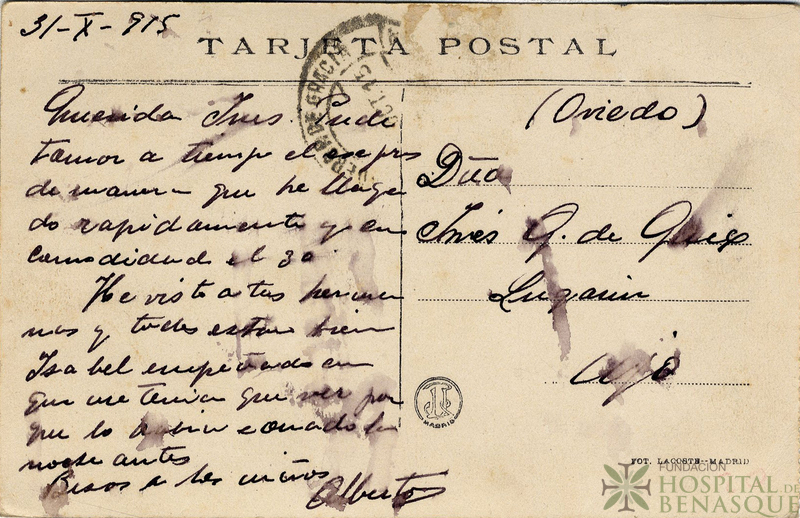 31-X-915
TARJETA POSTAL
Querida Ines Pudi
tamor a tiempo el
de manera que he llega
do rapidamente y con
comodidad el 30
He visto a tus herma
nos y todos estan bien
Isabel empeñada en
que me tenia que ver por
que lo habia soñado la
noche antes
Besos a los niños
Alberto
(Oviedo)
Dña
Inés G. de
Ujo
MADRID
FOT. LACOSTE-MADRID
FUNDACIÓN
HOSPITAL DE
BENASQUE